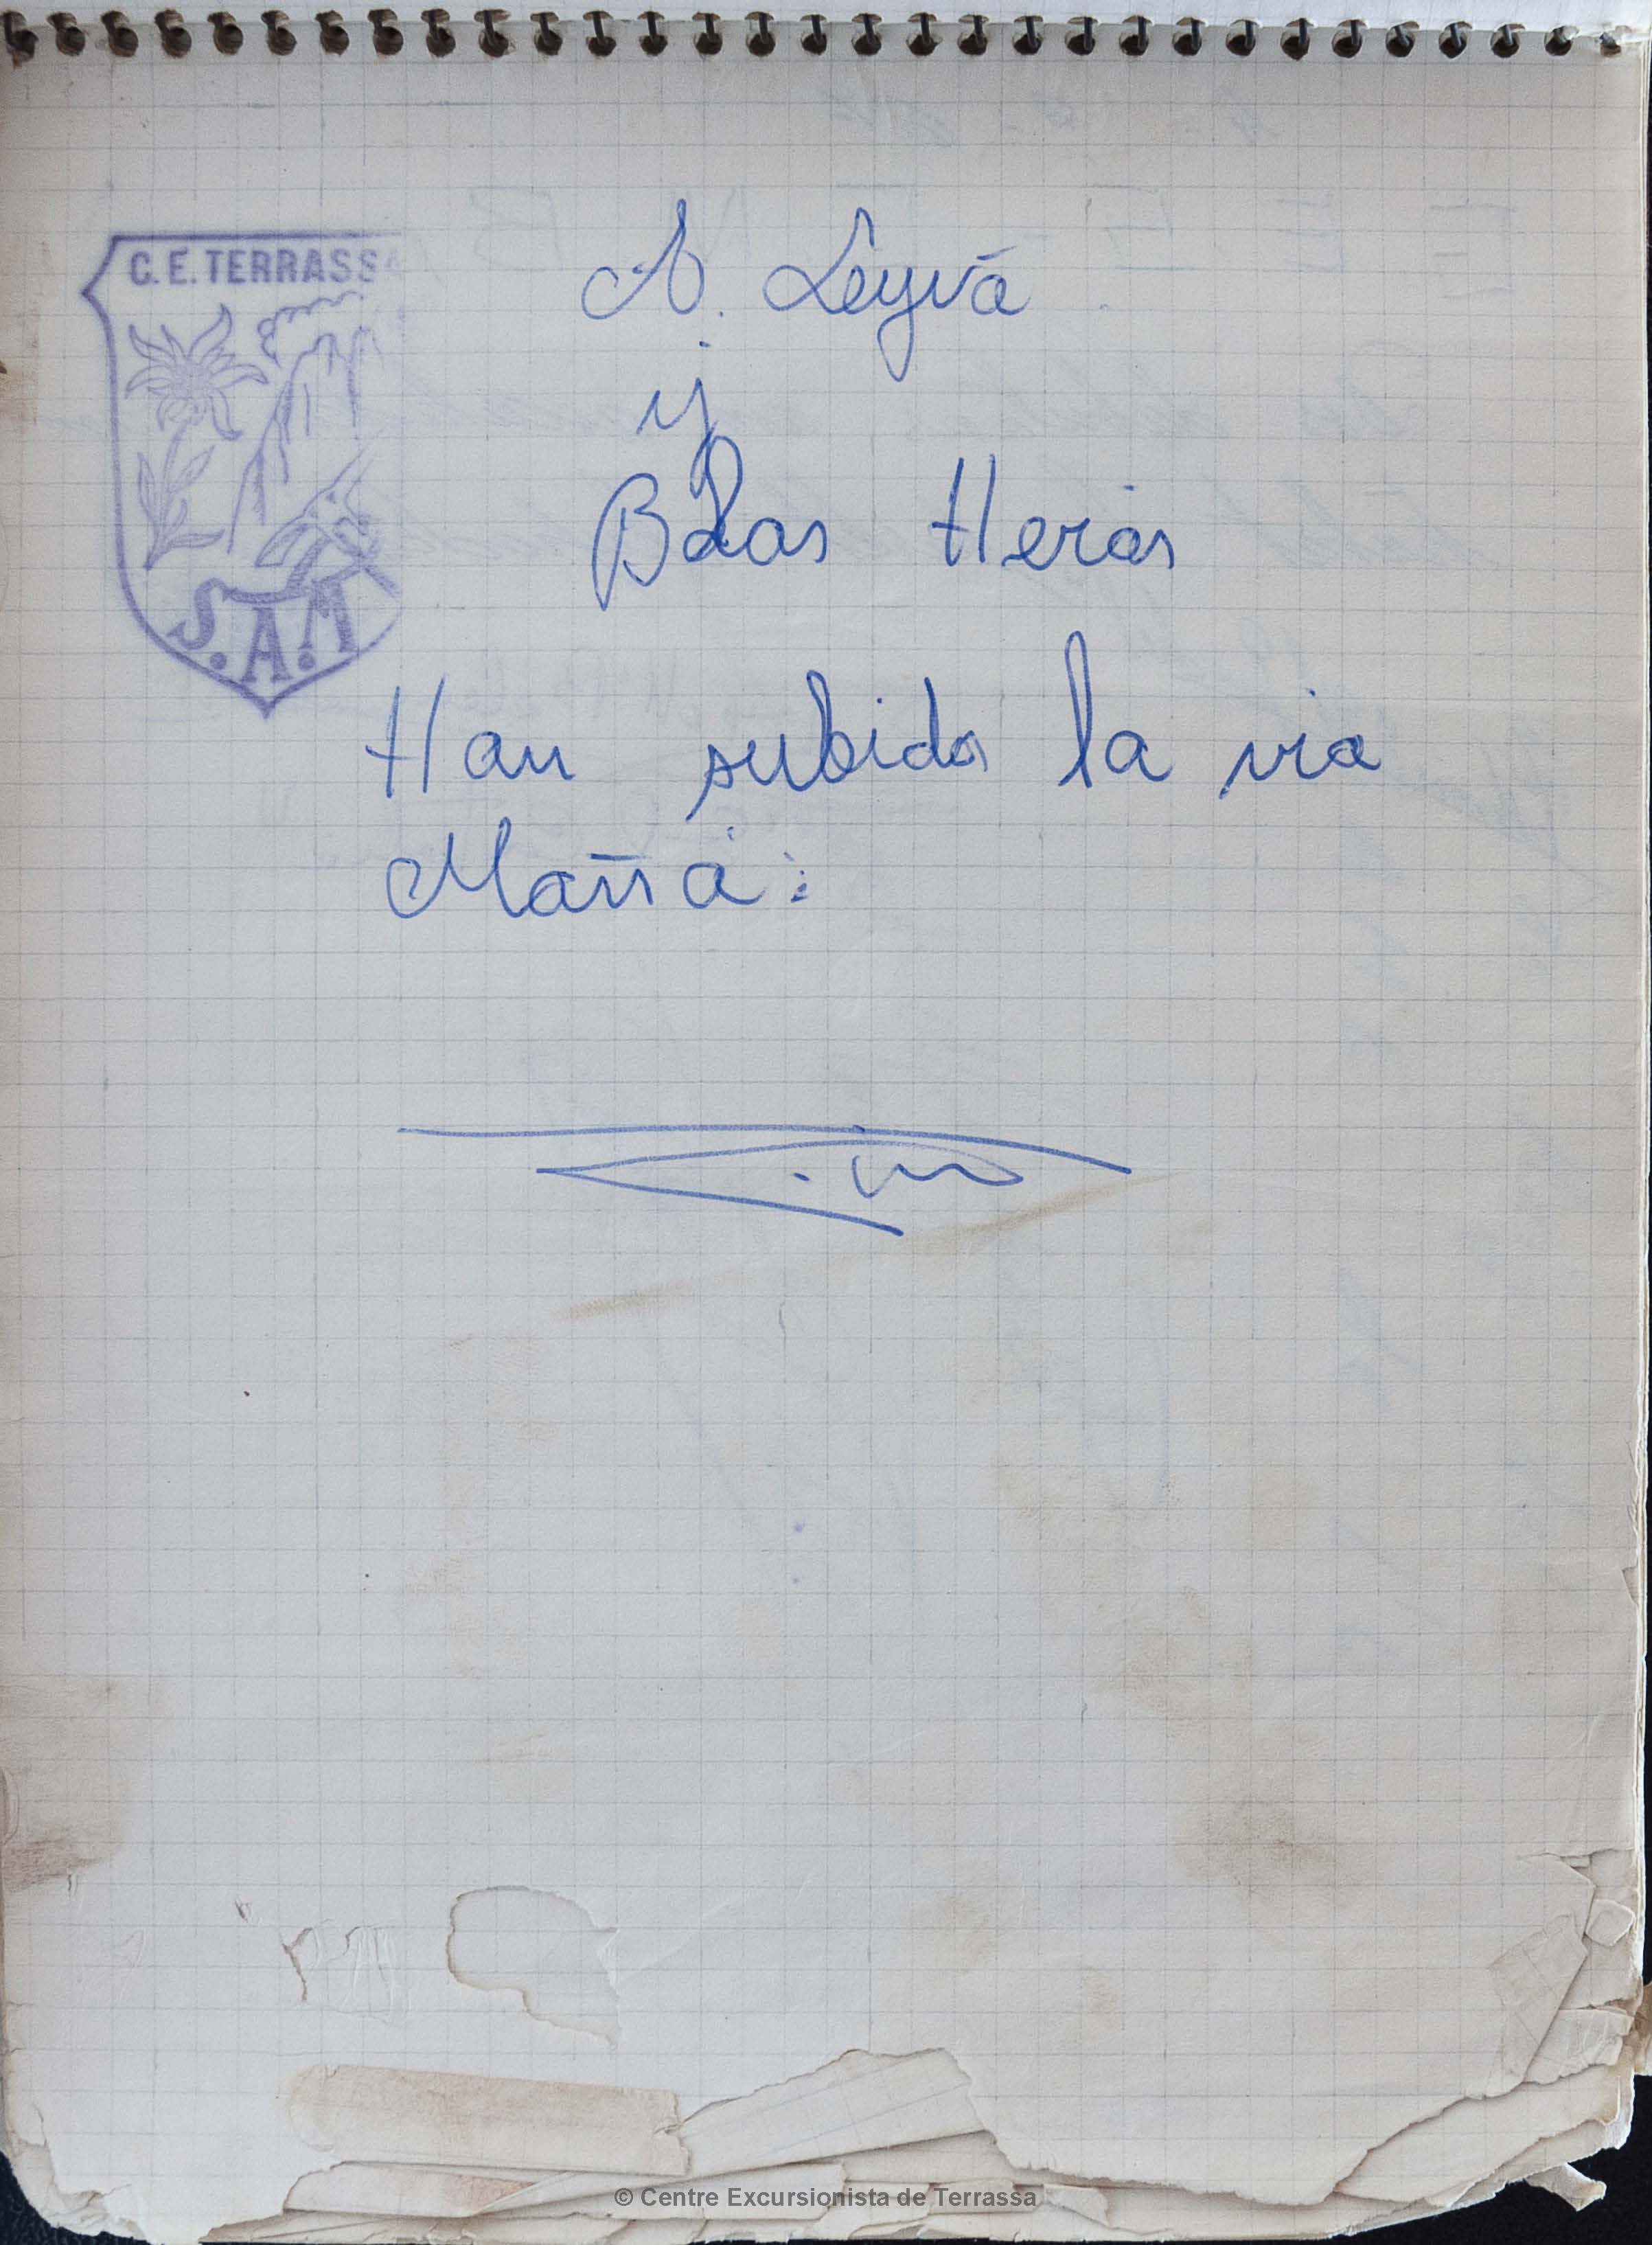 C.E. TERRASSA
S.A.M
A. Leyva
y
Blas Heras
Han subido la via
Mañá:
© Centre Excursionista de Terrassa